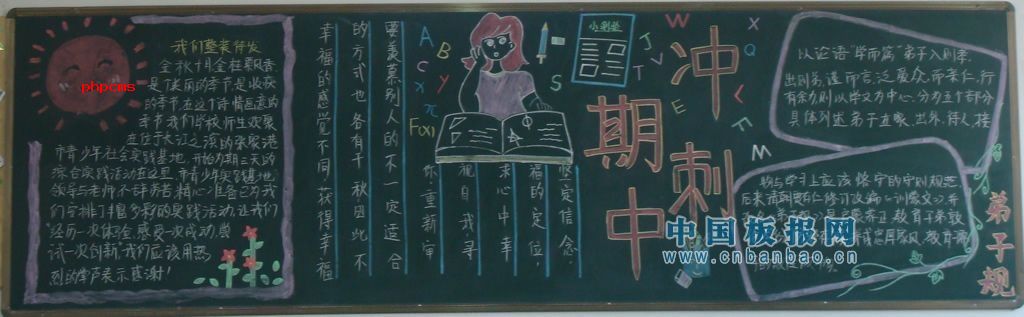 我们整装待发
金秋十月金桂飘香
是了美丽的季节是收获
的季节在这个诗情画意的
季节我们学校师生欢聚
在位于长江之滨的张家港
市青少年社会实践基地,开始为期三天的
综合实践活动在这里,市青少年实践基地
领导与老师不辞劳苦精心准备已为我
们安排了丰富多彩的实践活动,让我们
经历一次体会感受一次成功,尝
试一次创新"我们应该用热
烈的掌声表示感谢!
phpcms
要羡慕别人的不一定适合
的方式也各有千秋因此不
幸福的感觉不同,获得幸福
坚定信念
福的定位,
求心中幸
视自我寻
你,重新审
小测验
A B C y x π F(x)
S T J V T W E X Q L F M
冲刺
期中
以论语"学而篇"弟子入则孝
出则弟,谨而言,泛爱众,而亲仁,行
有余力,则以学文为中心.分为五个部分
具体列述弟子在家、出外、待人、接
物与学习上应该恪守的守则规范
后来清朝贾存仁修订改编《训蒙文》并
弟子规
中国板报网
www.cnbanbao.cn